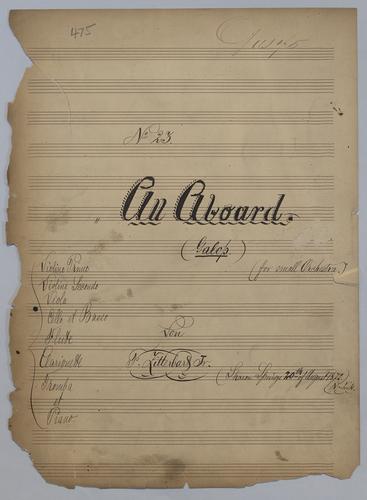 475
No 23.
An Aboard.
(Galop.)
(for small Orchestra.)
Violino Primo
Violino Secondo
Viola
Cello et Basso
Flute
Clarinette
Tromba
et
Piano
Von
F. Zitterbart Jr.
(Sharon Springs 20th of August 1872.)